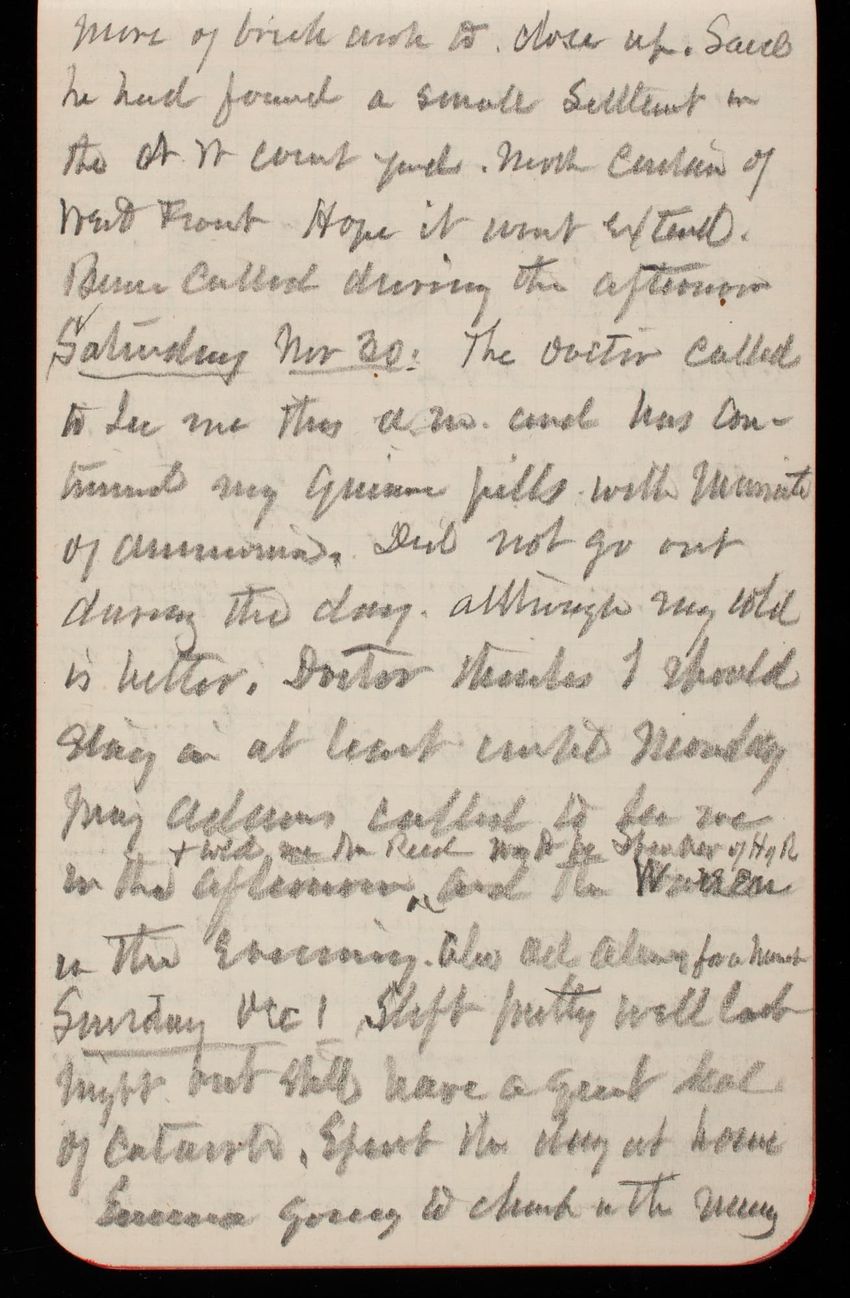 more of brick work to close up. Said
he had found a small settlemt in
the N W court yard. North Curtain of
West Front Hope it wont extend.
called during the afternoon
Saturday Nov 30: The doctor called
to see me this a.m. and has con-
tinued my Quinine pills with Muriate
of ammonia. Did not go out
during the day. although my cold
is better. Doctor thinks I should
stay in at least until Monday
May Adams called to see me
+ told me Tom Reed may be Speaker of H of R
in the afternoon, and the Warren
in the Evening. Also for a moment
Sunday Dec 1 Slept pretty well last
night but still have a great deal
of catarrh. Spent the day at home
Emma going to church in the morng